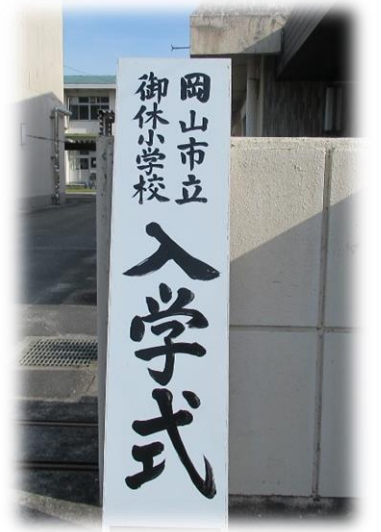 岡山市立
御休小学校
入学式